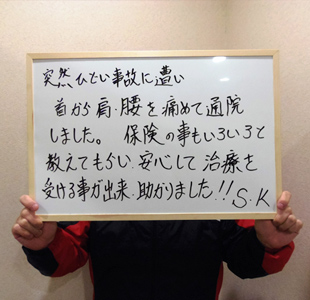 突然ひどい事故に遭い
首から肩・腰を痛めて通院
しました。 保険の事もいろいろと
教えてもらい、安心して治療を
受ける事が出来、助かりました!!
S.K